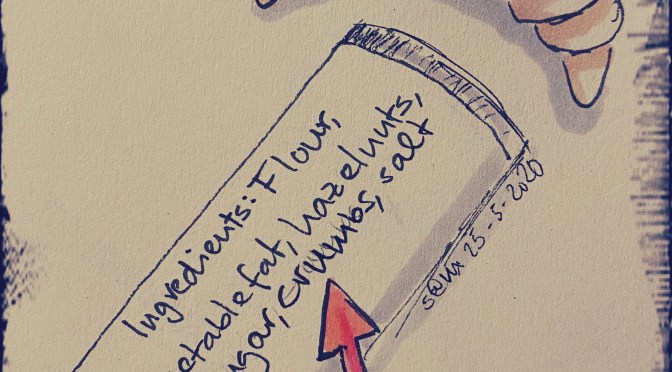 Ingredients: Flour,
etable fat, hazelnuts,
ugar, crumbs, salt
25-5-2020